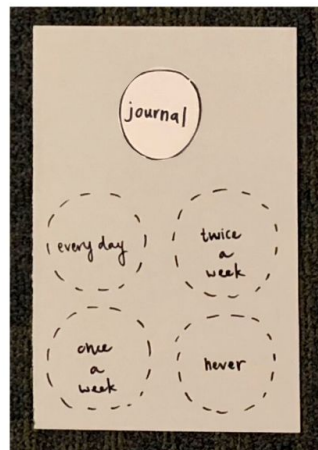 journal
every day
twice
a
week
once
a
week
never